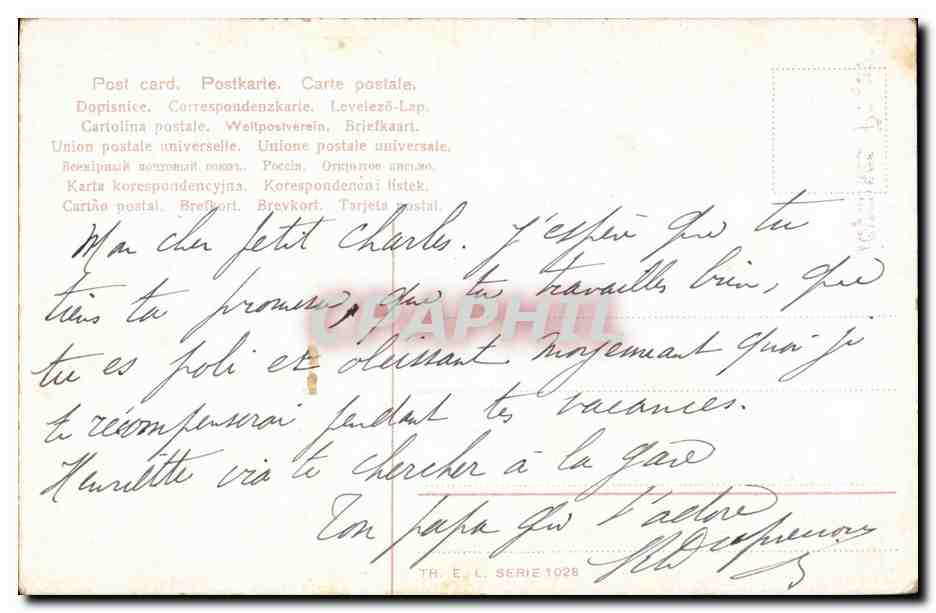 Post card. Postkarte. Carte postale.
Dopisnice. Correspondenzkarte. Levelező-Lap.
Cartolina postale. Weltpostverein. Briefkaart.
Union postale universelle. Unione postale universale.
Всемірный почтовый союзъ. Россія. Открытое письмо.
Karta korespondencyjna. Korespondencni listek.
Cartão postal. Brefkort. Brevkort. Tarjeta postal.
Mon cher petit Charles. J'espère que tu
tiens ta promesse, que tu travailles bien, que
tu es poli et obéissant moyennant quoi je
te récompenserai pendant tes vacances.
Henriette ira te chercher à la gare
Ton papa qui t'adore
CPAPHIL
TH. E. L. SERIE 1028